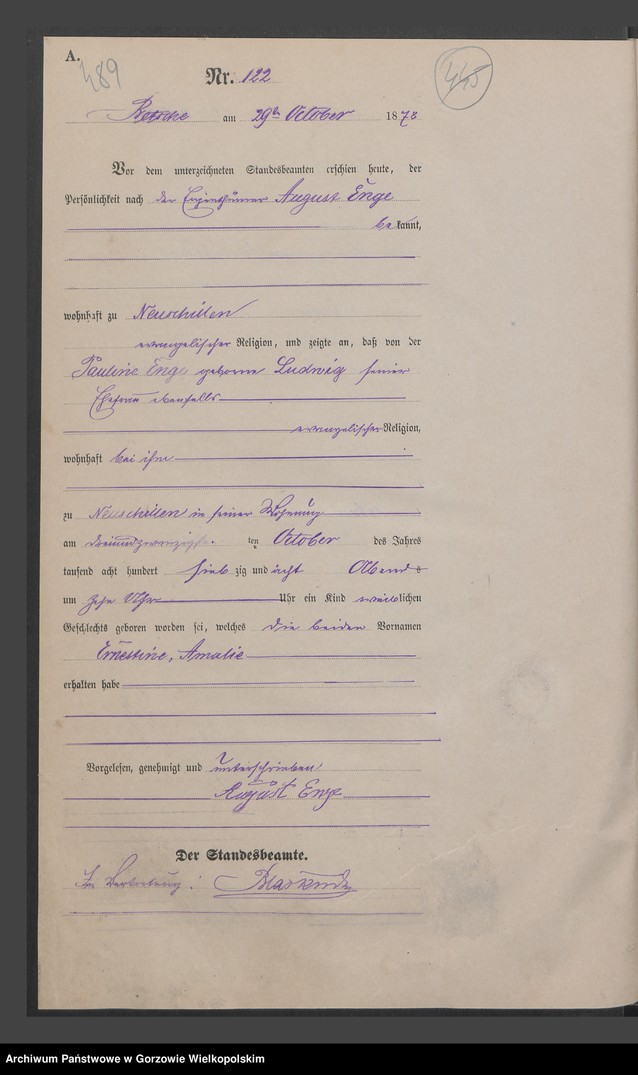 A.
489
Nr. 122
445
Betsche am 29ten October 1878
Vor dem unterzeichneten Standesbeamten erschien heute, der
Persönlichkeit nach der Eigenthümer August Enge
bekannt,
wohnhaft zu Neuschillen
evangelischer Religion, und zeigte an, daß von der
Pauline Enge geborene Ludwig seiner
Ehefrau ebenfalls
evangelischer Religion,
wohnhaft bei ihm
zu Neuschillen in seiner Wohnung
am dreiundzwanzigs. ten October des Jahres
tausend acht hundert siebzig und acht Abends
um zehn Uhr Uhr ein Kind weiblichen
Geschlechts geboren worden sei, welches die beiden Vornamen
Ernestine, Amalie
erhalten habe
Vorgelesen, genehmigt und unterschrieben
August Enge
Der Standesbeamte.
In Vertretung:
Archiwum Państwowe w Gorzowie Wielkopolskim